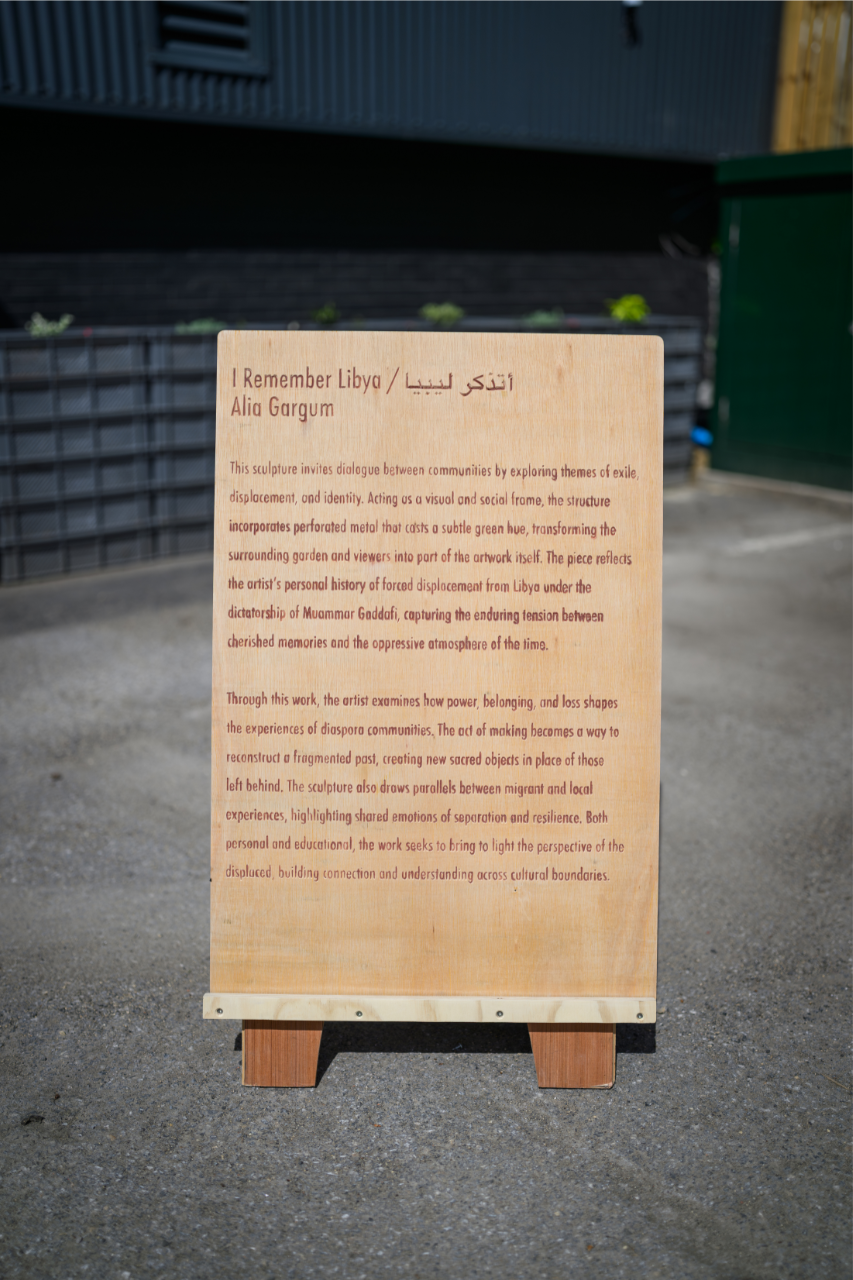 I Remember Libya / أتذكر ليبيا
Alia Gargum
This sculpture invites dialogue between communities by exploring themes of exile,
displacement, and identity. Acting as a visual and social frame, the structure
incorporates perforated metal that casts a subtle green hue, transforming the
surrounding garden and viewers into part of the artwork itself. The piece reflects
the artist's personal history of forced displacement from Libya under the
dictatorship of Muammar Gaddafi, capturing the enduring tension between
cherished memories and the oppressive atmosphere of the time.
Through this work, the artist examines how power, belonging, and loss shapes
the experiences of diaspora communities. The act of making becomes a way to
reconstruct a fragmented past, creating new sacred objects in place of those
left behind. The sculpture also draws parallels between migrant and local
experiences, highlighting shared emotions of separation and resilience. Both
personal and educational, the work seeks to bring to light the perspective of the
displaced, building connection and understanding across cultural boundaries.